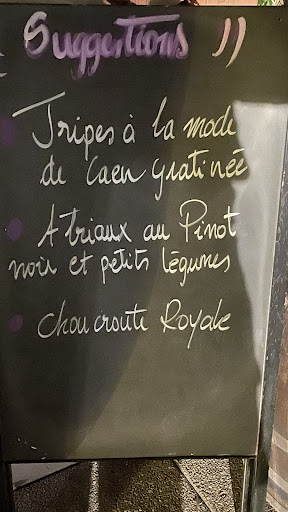 Suggestions
Tripes à la mode
de Caen gratinée
Atriaux au Pinot
noir et petits légumes
choucroute Royale